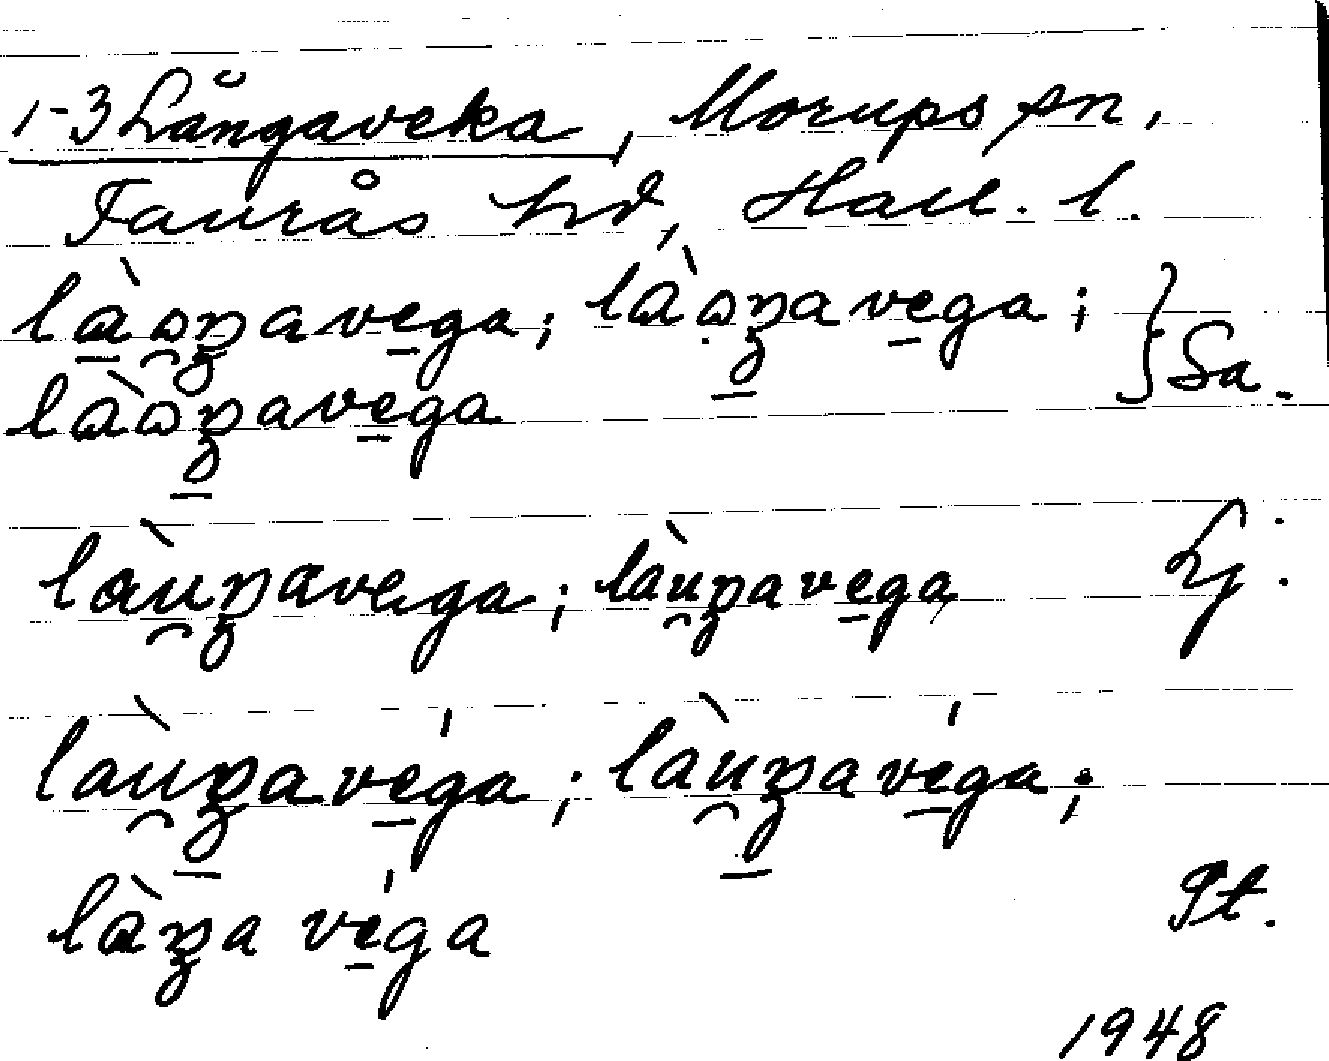 1-3 Långaveka, Morups sn,
Faurås hd, Hall. l.
là̱ɷ̯ŋave̱ga; làɷŋ̱ave̱ga; } Sa.
làɷŋ̱ave̱ga
làu̯ŋavega; làu̯ŋave̱ga Lj.
làu̯ŋ̱avé̱ga; làu̯ŋ̱avé̱ga;
làŋa vé̱ga Pt.
1948